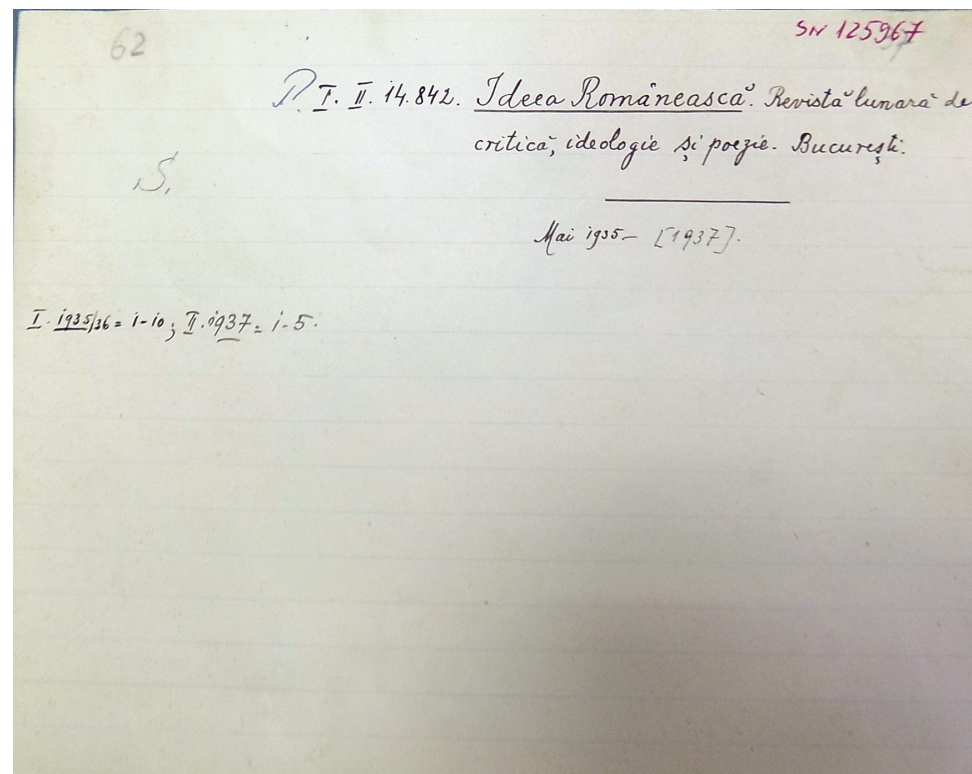 62
SN 125967
P. I. II. 14.842. Ideea Românească. Revistă lunară de
critică, ideologie și poezie. București.
S.
Mai 1935 — [1937].
I. 1935/36 = 1-10; II. 1937 = 1-5.